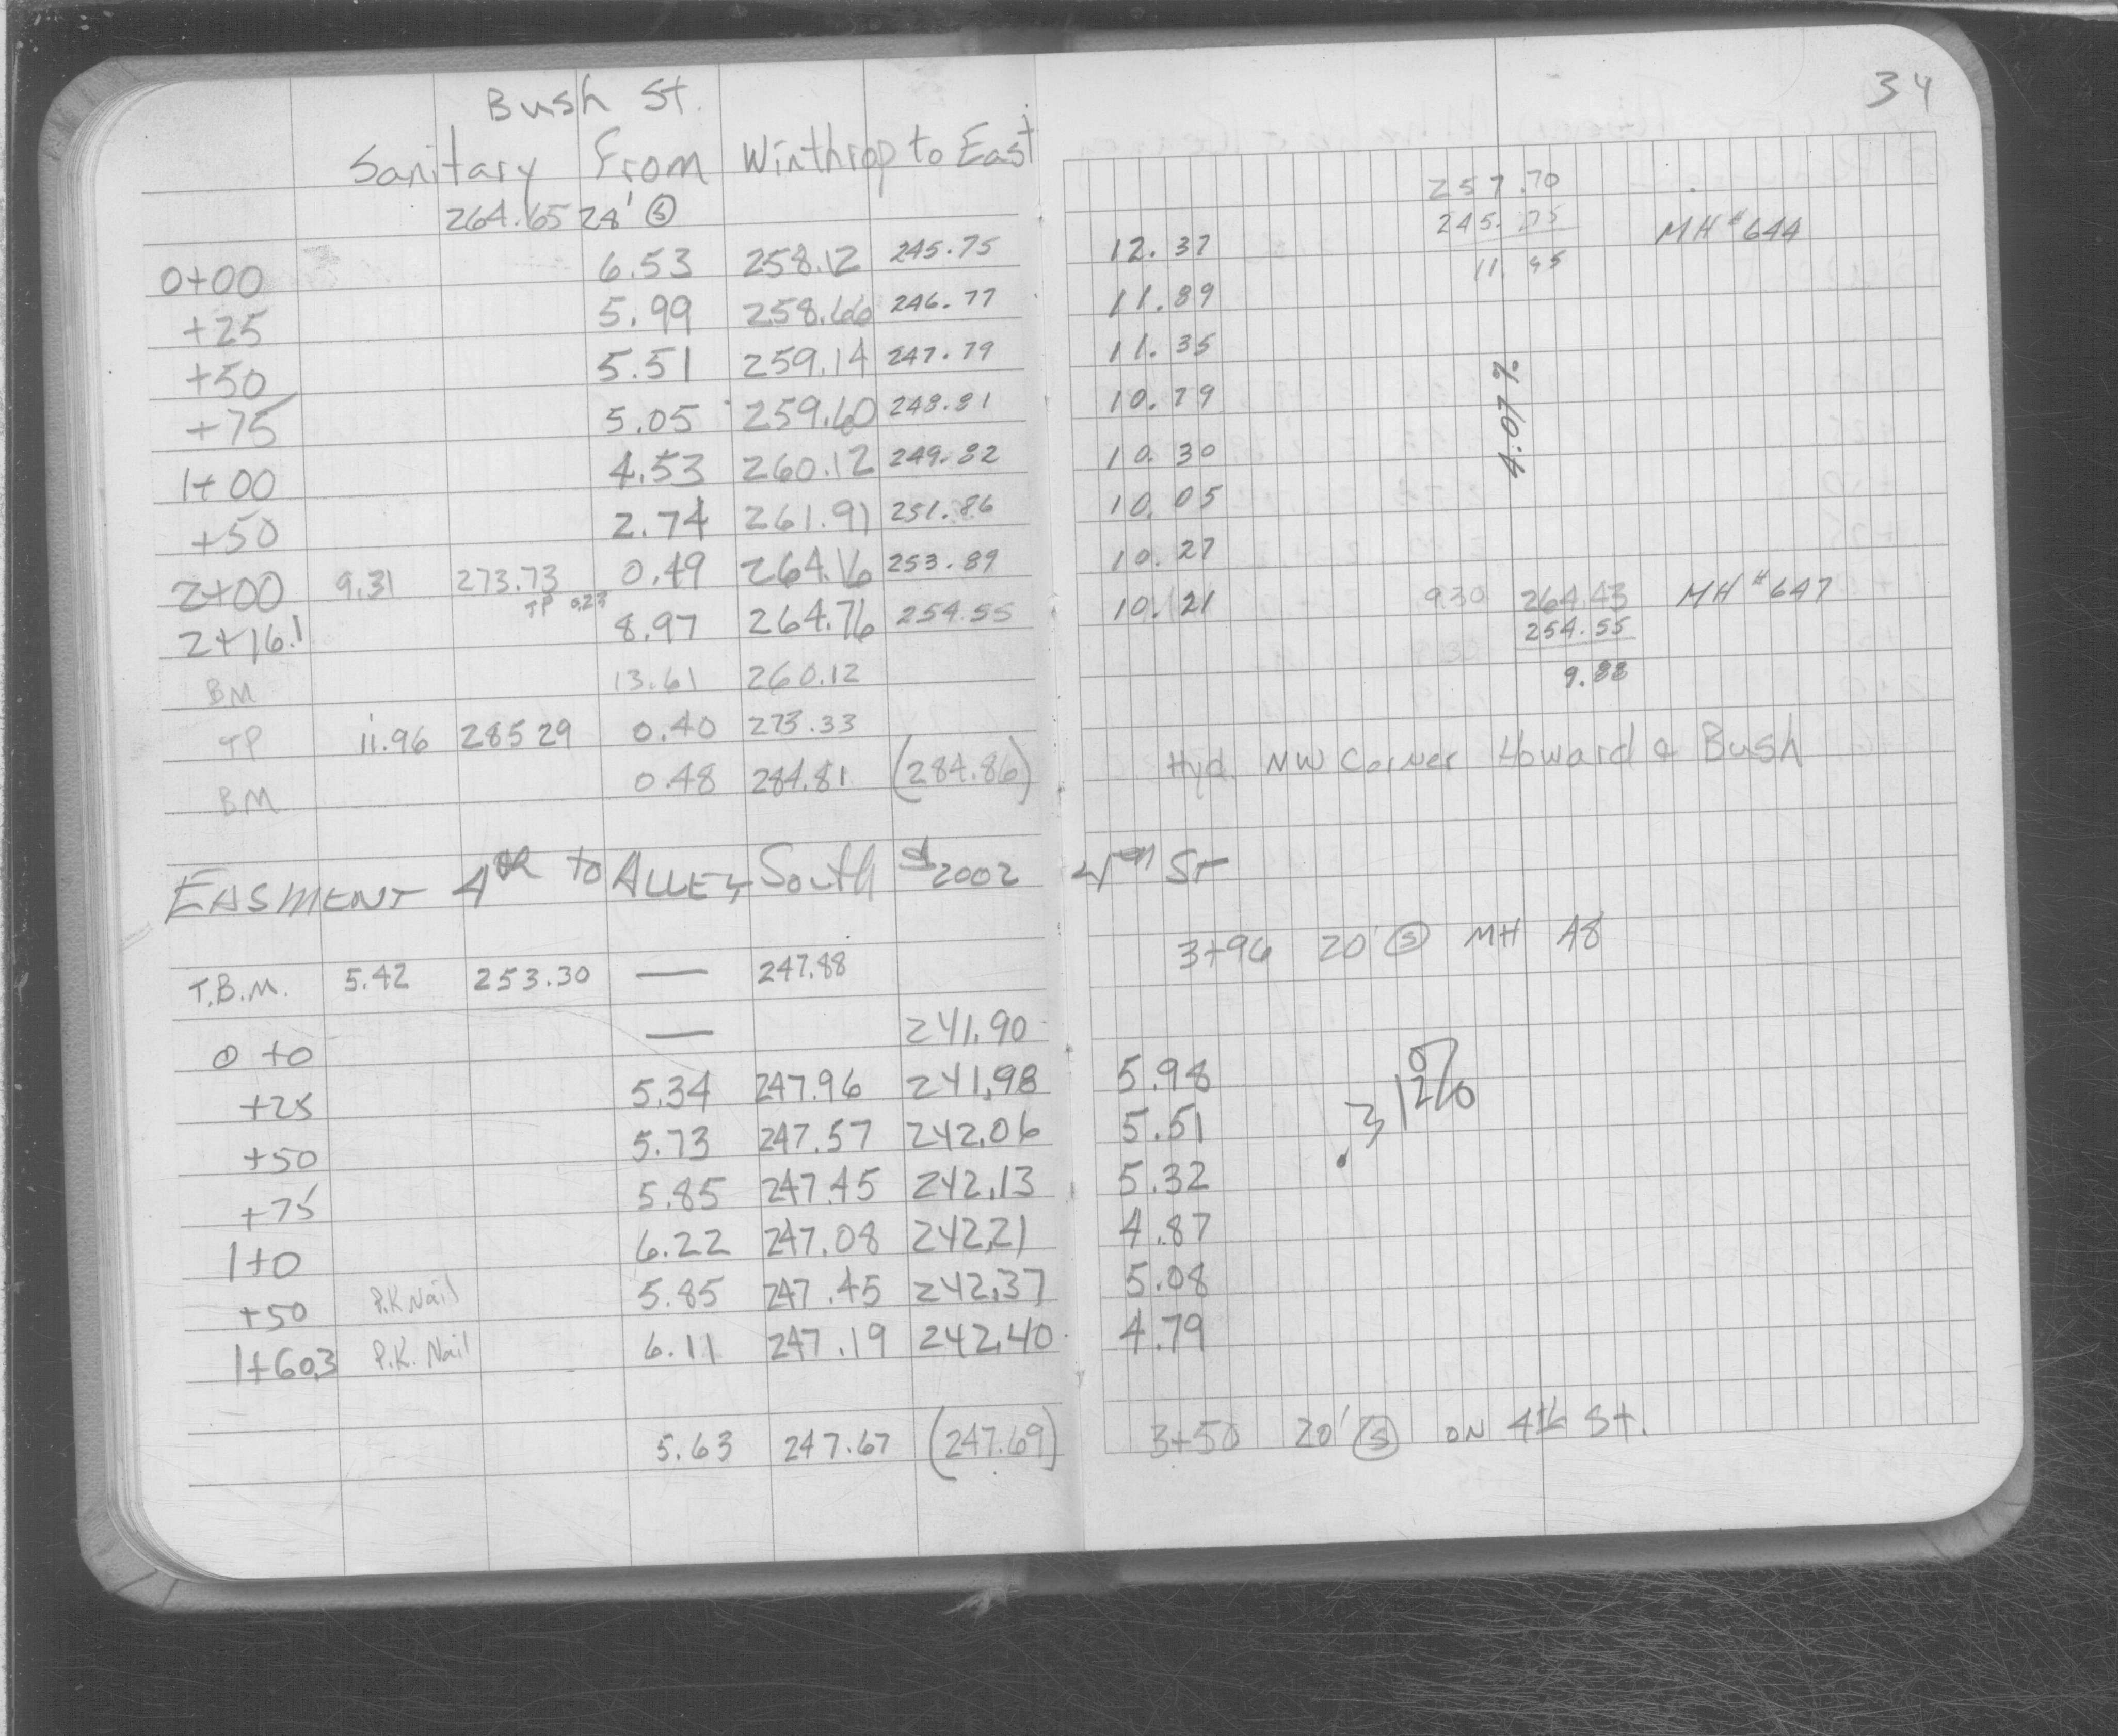 34
Bush St.
Sanitary From Winthrop to East
264.65 28' Ⓢ
257.70
0+00 6.53 258.12 245.75 12.37 245.75 MH #644
11.95
+25 5.99 258.66 246.77 11.89
+50 5.51 259.14 247.79 11.35
+75 5.05 259.60 248.81 10.79
4.07%
1+00 4.53 260.12 249.82 10.30
+50 2.74 261.91 251.86 10.05
2+00 9.31 273.73 0.49 264.16 253.89 10.27
TP 0.23
2+16.1 8.97 264.76 254.55 10.21 9.30 264.43 MH #647
254.55
BM 13.61 260.12 9.88
TP 11.96 285 29 0.40 273.33
BM 0.48 284.81 (284.86) Hyd. NW Corner Howard & Bush
EASMENT 4th to ALLEY South 2002 4TH ST
3+96 20' Ⓢ MH A8
T.B.M. 5.42 253.30 — 247.88
0+0 — 241.90
+25 5.34 247.96 241.98 5.98
.312%
+50 5.73 247.57 242.06 5.51
+75 5.85 247.45 242.13 5.32
1+0 6.22 247.08 242.21 4.87
+50 P.K Nail 5.85 247.45 242.37 5.08
1+60.3 P.K. Nail 6.11 247.19 242.40 4.79
5.63 247.67 (247.69) 3+50 20' Ⓢ ON 4th St.